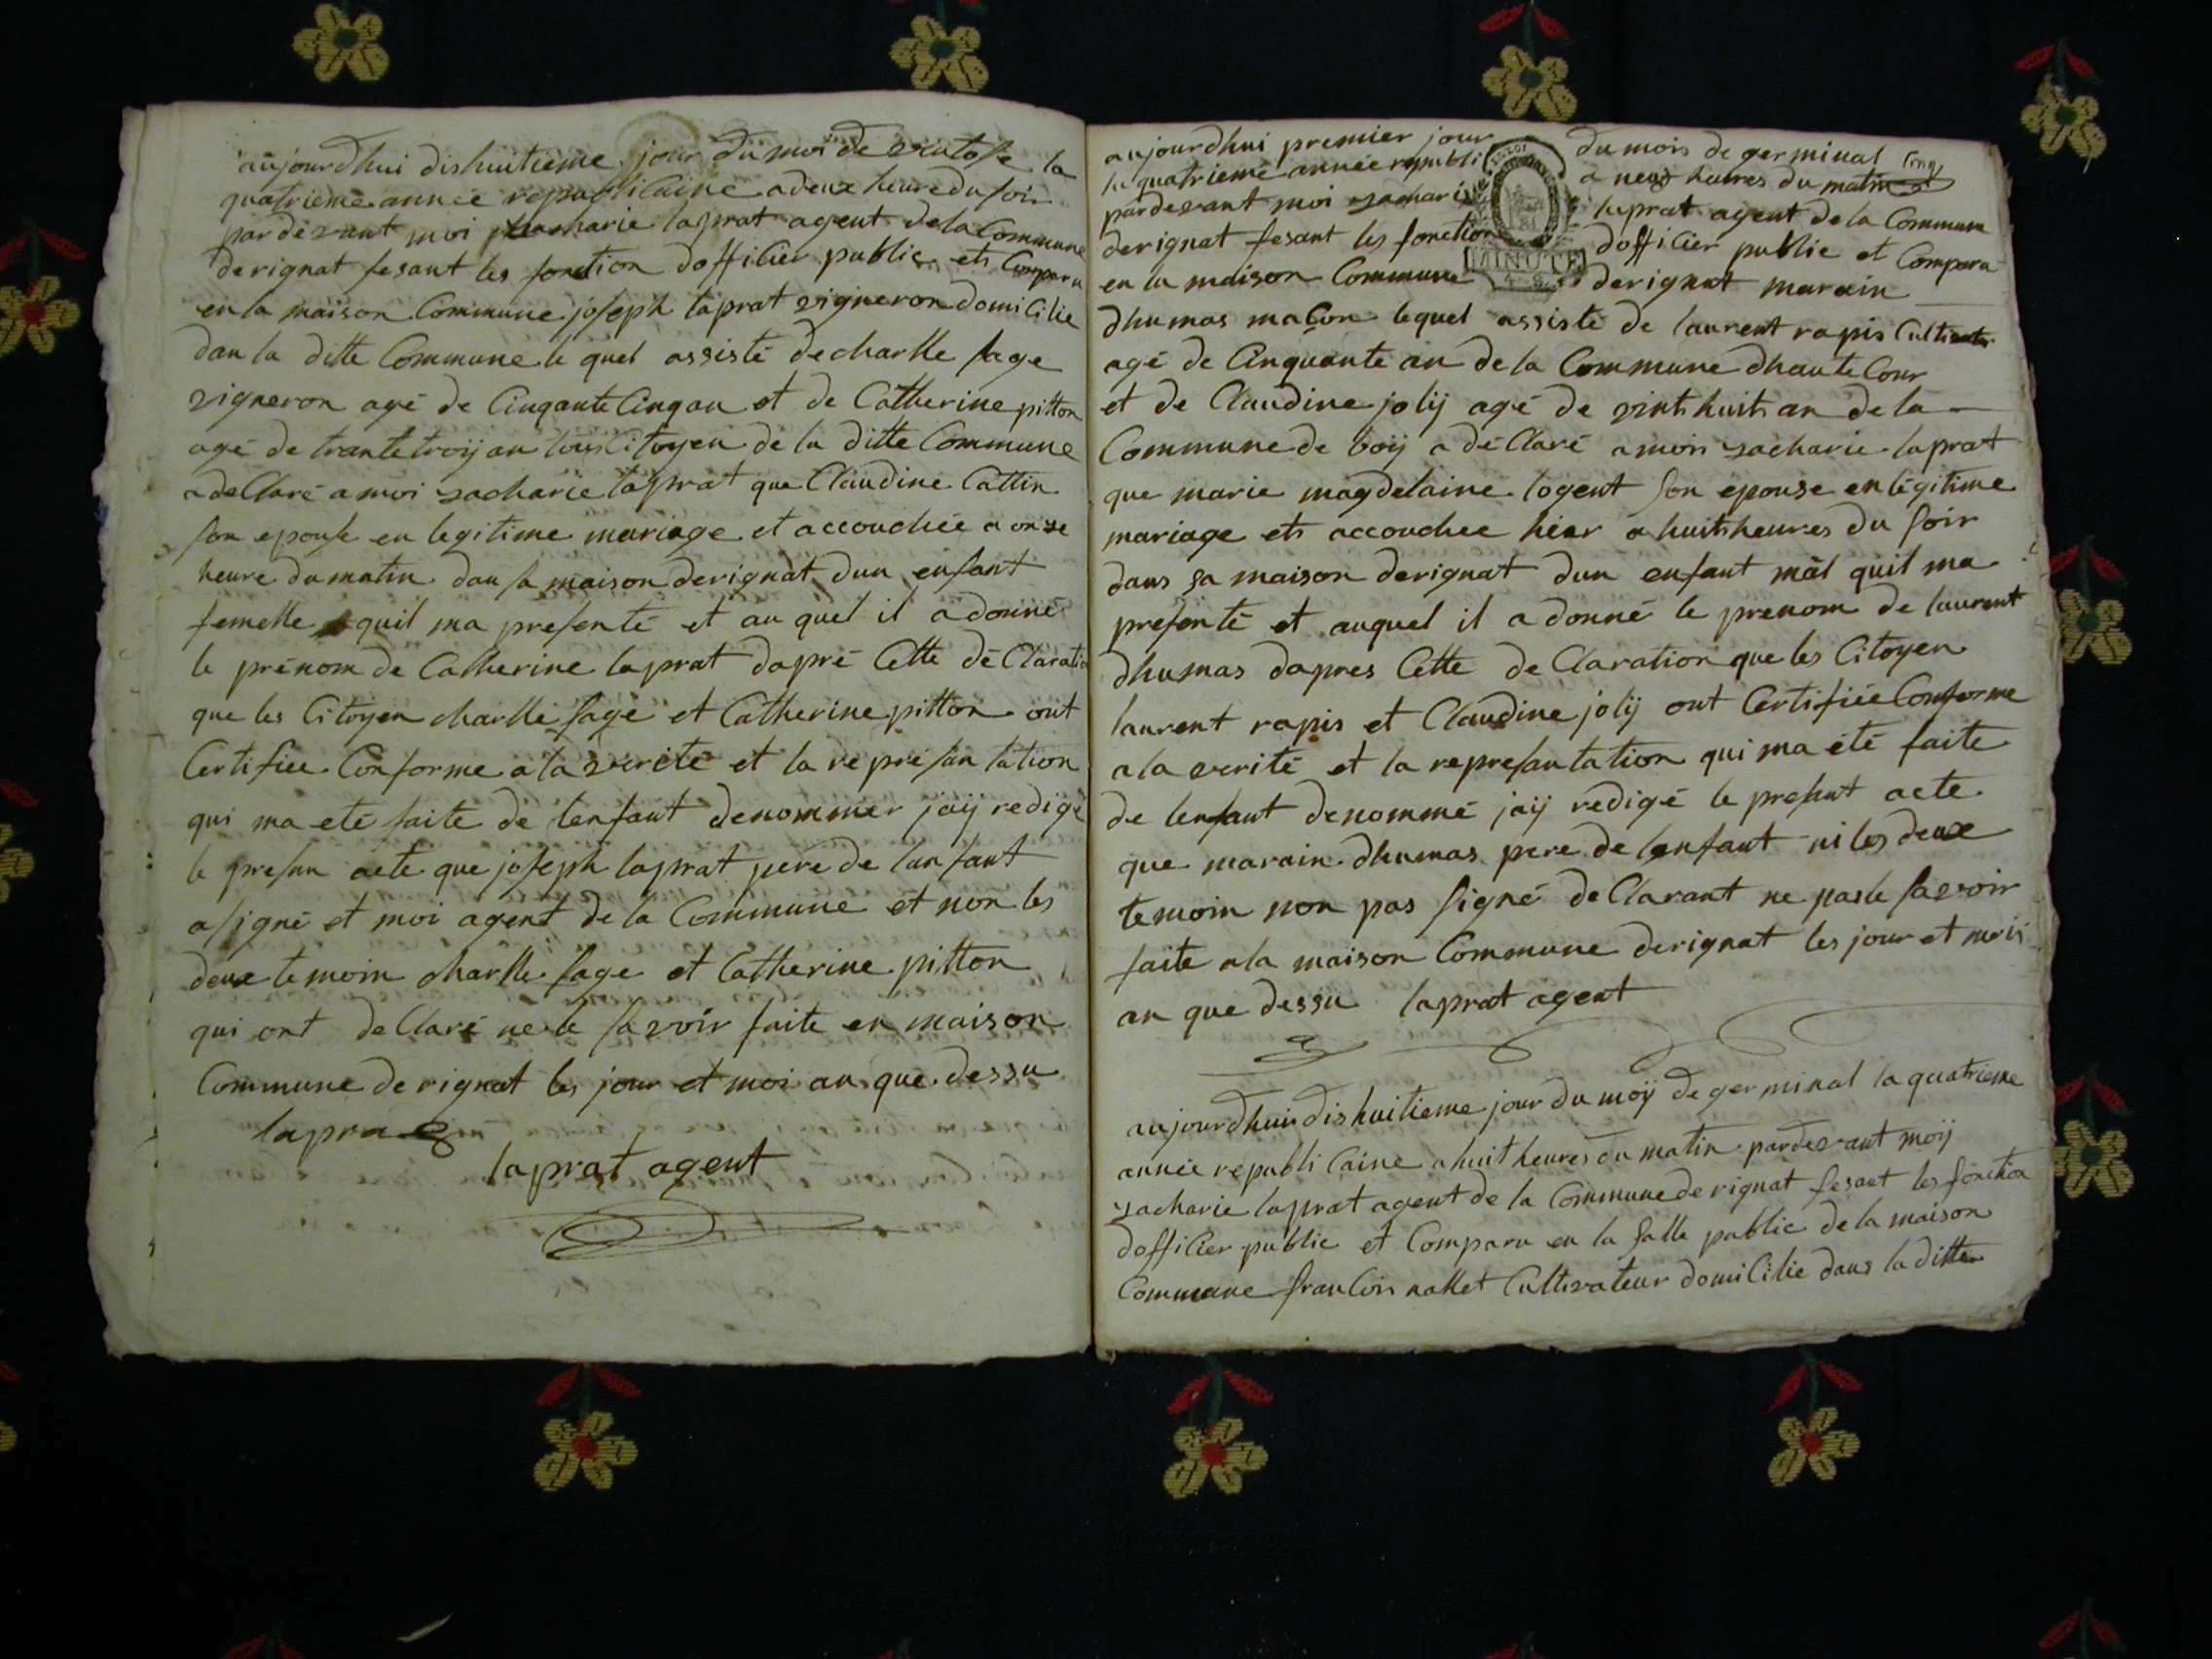 aujourdhui dishuitieme jour du moi de vantose la
quatrieme année republicaine a deux heure du soir
pardevant moi zacharie laprat agent de la Commune
derignat fesant les fonction dofficier public ets Comparu
en la maison Commune joseph laprat vigneron domicilie
dan la ditte Commune le quel assisté de charlle sage
vigneron agé de Cinqante Cinqan et de Catherine pitton
agé de trante troij an tous Citoyen de la ditte Commune
a deClaré a moi zacharie laprat que Claudine Cattin
son epouse en legitime mariage et accouchée a onze
heure du matin dan sa maison derignat dun enfant
femelle quil ma presenté et au quel il a donné
le prénom de Catherine laprat dapré Cette déClaratio
que les Citoyen charlle sage et Catherine pitton ont
Certifiée Conforme a la verité et la représantation
qui ma eté faite de lenfant denommer jaij redigé
le presan acte que joseph laprat pere de lanfant
a signé et moi agent de la Commune et non les
deux temoin charlle sage et Catherine pitton
qui ont deClaré ne le savoir faite en maison
Commune de rignat les jour et moi an que dessu
laprat
laprat agent
aujourdhui premier jour du mois de germinal
la quatrieme année republi a neuf heures du matin
pardevant moi zacharie laprat agent de la Commune
derignat fesant les fonction dofficier public et Comparu
en la maison Commune derignat marain
MINUTE
dhumas maçon lequel assisté de laurent rapis Cultivateur
agé de Cinquante an de la Commune dhauteCour
et de Claudine jolij agé de vints huits an de la
Commune de boij a déClaré a moi zacharie laprat
que marie magdelaine logent son epouse en légitime
mariage ets accouchee hier a huits heures du soir
dans sa maison derignat dun enfant mâl quil ma
presenté et auquel il a donné le prenom de laurent
dhumas dapres Cette deClaration que les Citoyen
laurent rapis et Claudine jolij ont Certifiée Conforme
a la verité et la represantation qui ma été faite
de lenfant denommé jaij redigé le presant acte
que marain dhumas pere de lenfant ni les deux
temoin non pas signé deClarant ne pas le savoir
faite a la maison Commune derignat les jour et mois
an que dessu laprat agent
aujourdhuir dishuitieme jour du moij de germinal la quatrieme
année republiCaine a huit heures du matin pardevant moij
zacharie laprat agent de la Commune de rignat fesaet les fonction
dofficier public et Comparu en la salle public de la maison
Commune franCois nallet Cultivateur domiCilié dans la ditte